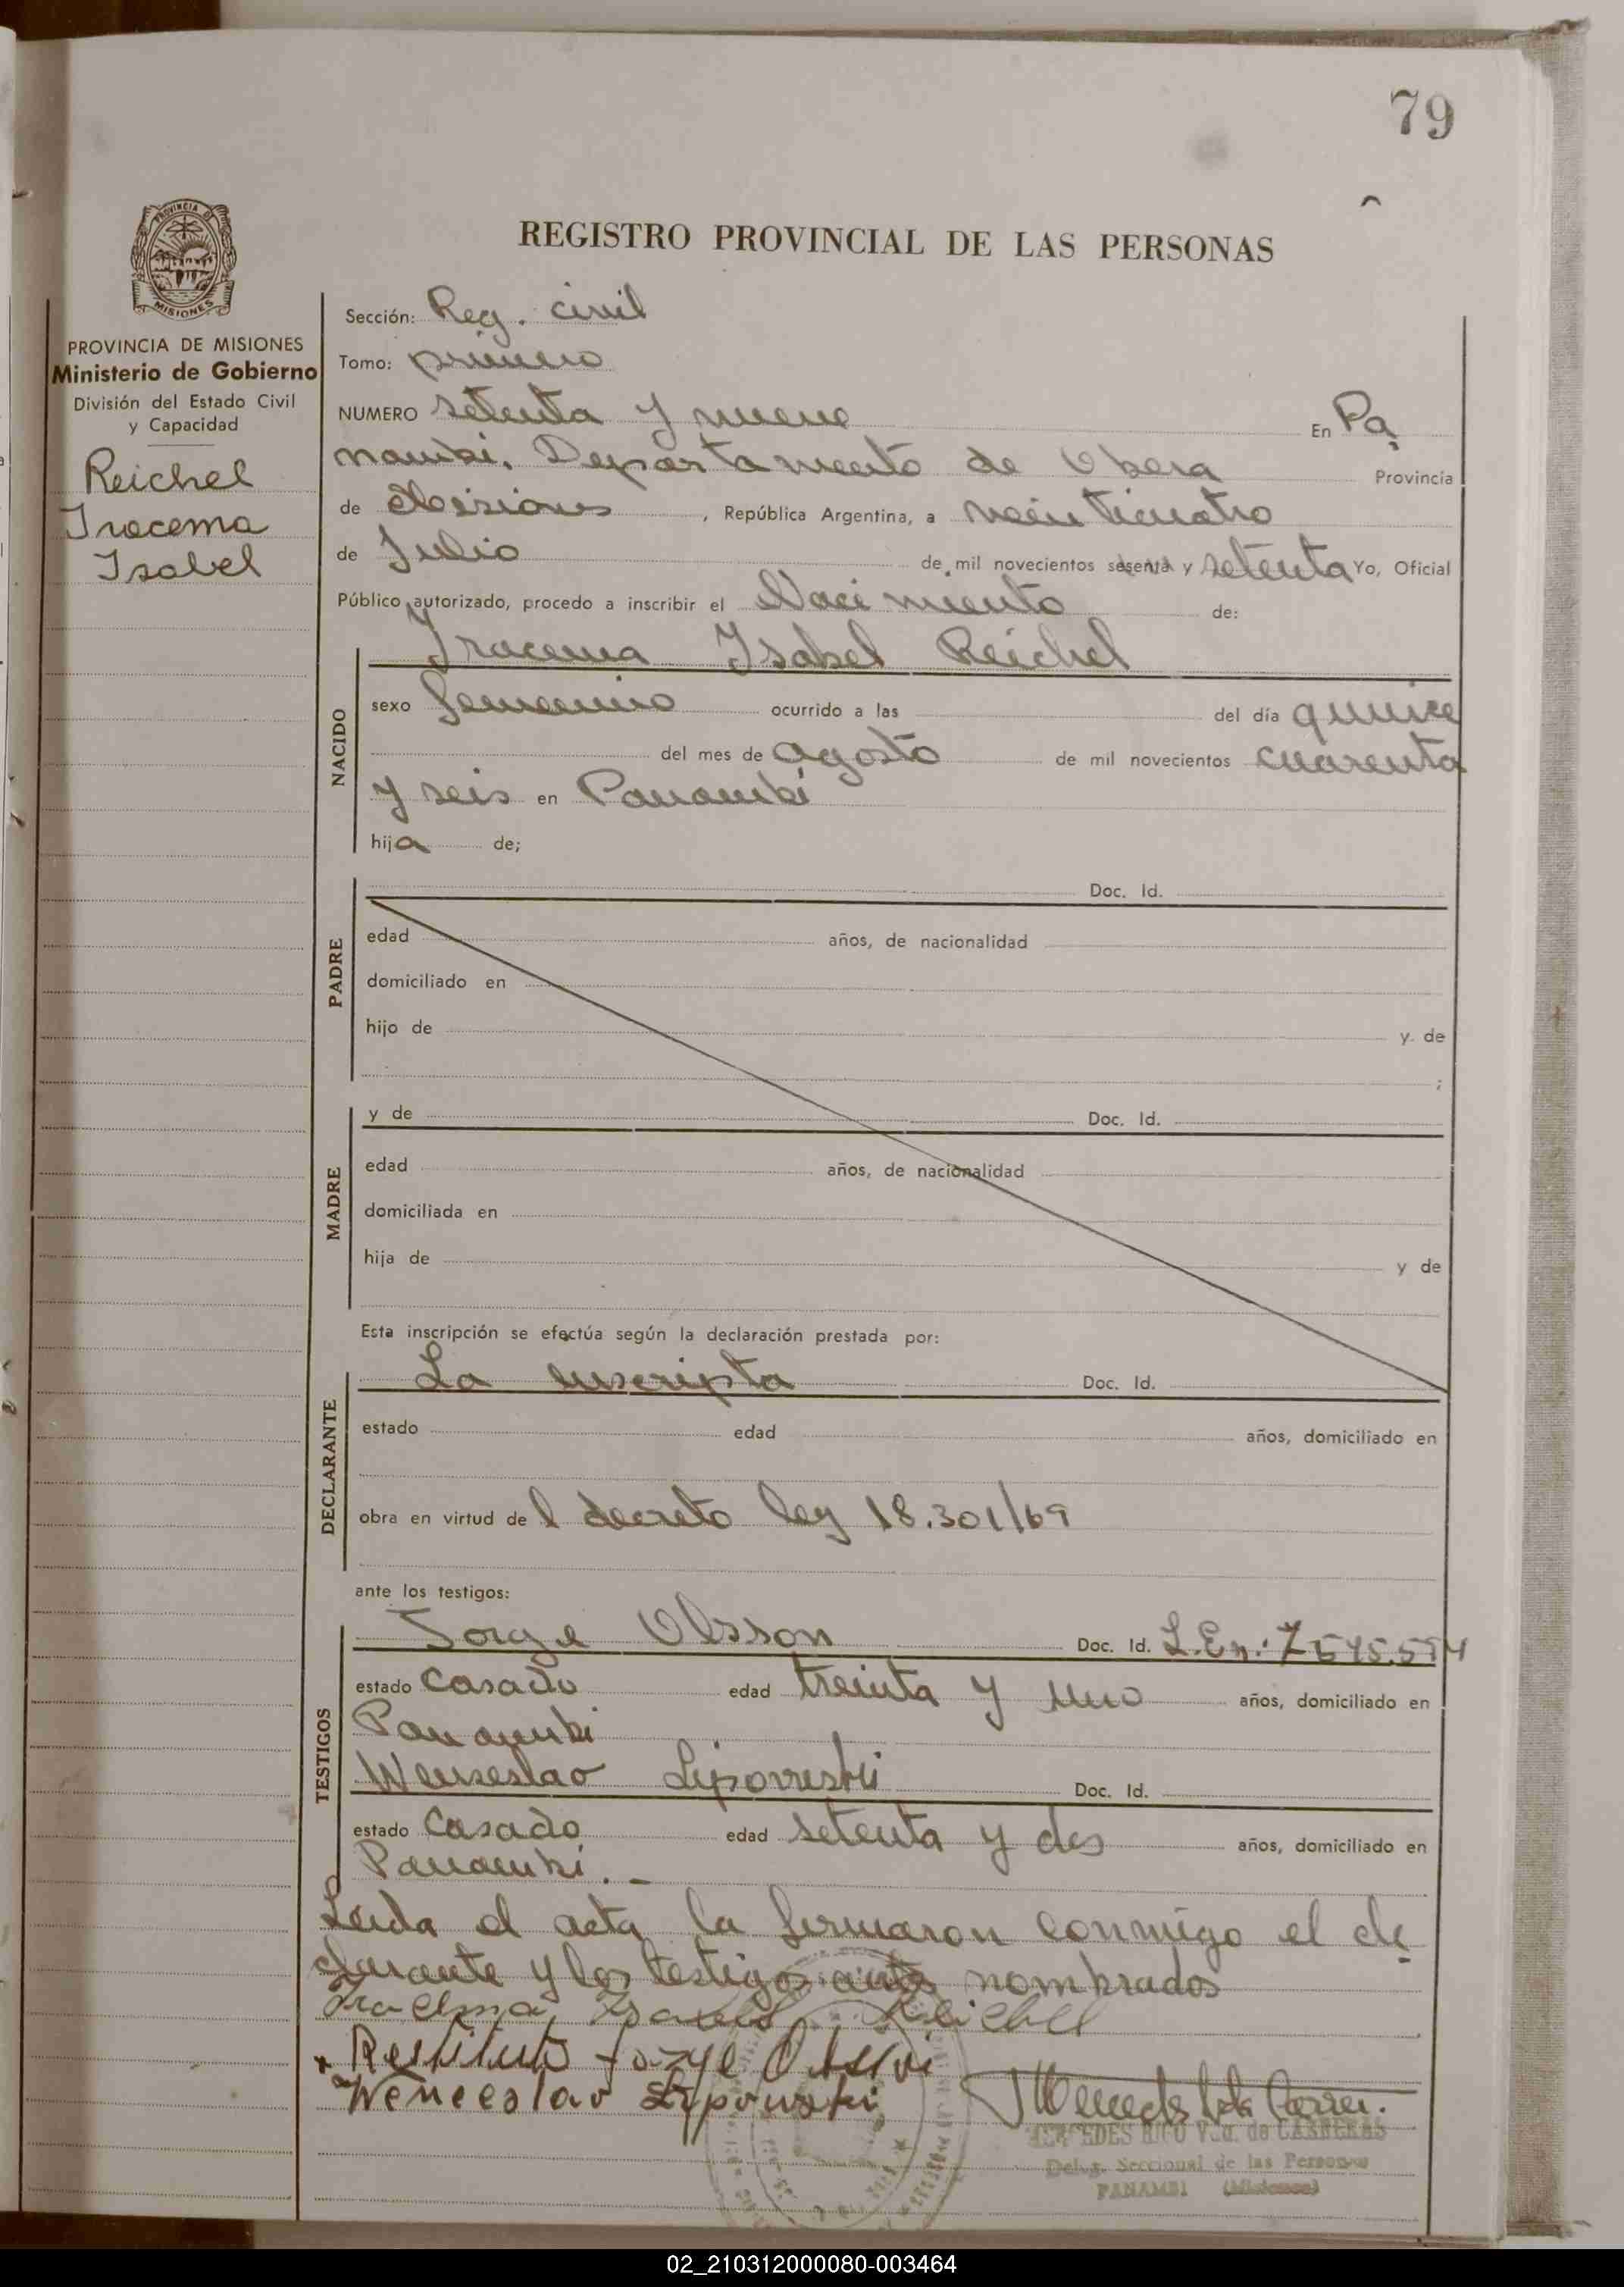 79
REGISTRO PROVINCIAL DE LAS PERSONAS
PROVINCIA DE MISIONES
Ministerio de Gobierno
División del Estado Civil
y Capacidad
Reichel
Iracema
Isabel
Sección: Reg. civil
Tomo: primero
NUMERO setenta y nueve En Pa
nambi, Departamento de Obera Provincia
de Misiones, República Argentina, a veinticuatro
de Julio de mil novecientos sesenta y setenta Yo, Oficial
Público autorizado, procedo a inscribir el Nacimiento de:
Iracema Isabel Reichel
NACIDO
sexo femenino ocurrido a las del día quince
del mes de agosto de mil novecientos cuarenta
y seis en Panambi
hija de;
PADRE
Doc. Id.
edad años, de nacionalidad
domiciliado en
hijo de y de
;
MADRE
y de Doc. Id.
edad años, de nacionalidad
domiciliada en
hija de y de
Esta inscripción se efectúa según la declaración prestada por:
DECLARANTE
La inscripta Doc. Id.
estado edad años, domiciliado en
obra en virtud del decreto ley 18.301/69
ante los testigos:
TESTIGOS
Jorge Olsson Doc. Id. L.En. 7.575.574
estado casado edad treinta y uno años, domiciliado en
Panambi
Wenseslao Lipowski Doc. Id.
estado casado edad setenta y dos años, domiciliado en
Panambi.
Leida el acta la firmaron conmigo el de
clarante y los testigos antes nombrados
Iracema Isabel Reichel
Restituto Jorge Olsson
Wenceslao Lipowski
MERCEDES RICO Vda. de CARRERAS
Deleg. Seccional de las Personas
PANAMBI (Misiones)
02_210312000080-003464